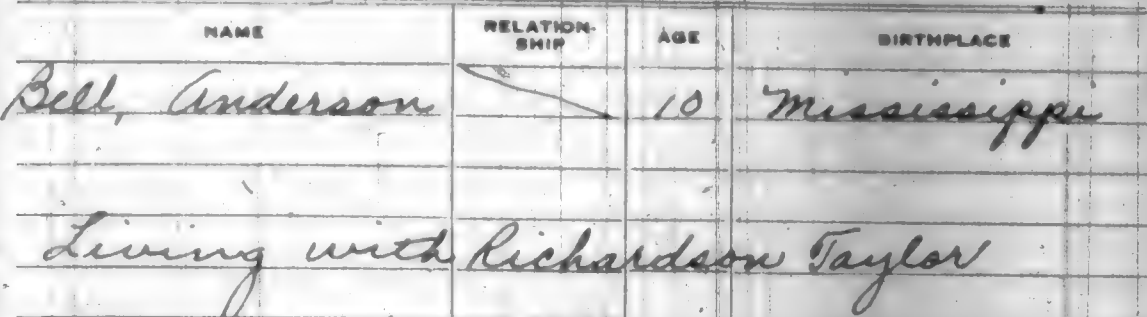 NAME RELATION-SHIP AGE BIRTHPLACE
Bell, Anderson 10 Mississippi
Living with Richardson Taylor